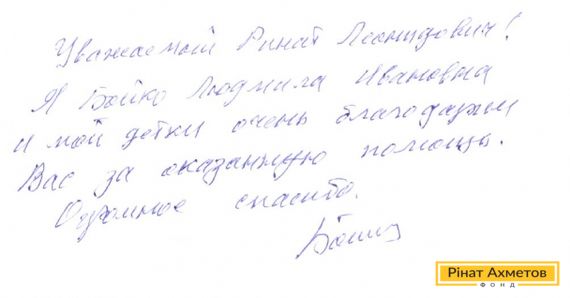 Уважаемый Ринат Леонидович!
Я Бойко Людмила Ивановна
и мои детки очень благодарим
Вас за оказанную помощь.
Огромное спасибо.
Рінат Ахметов
ФОНД